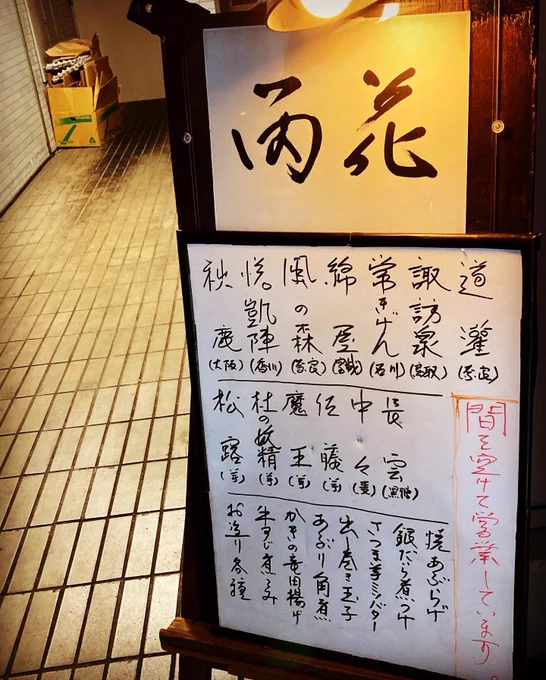 雨花
道灌
諏訪泉(鳥取)
常きげん(石川)
綿屋(宮城)
風の森(奈良)
悦凱陣(香川)
秋鹿(大阪)
長雲(黒糖)
中々(麦)
佐藤(芋)
魔王(芋)
杜の妖精(芋)
松露(芋)
間を空けて営業しています。
焼あぶらげ
銀だら煮つけ
さつま芋
出し巻き玉子
あぶり角煮
かきの竜田揚げ
牛すじ煮こみ
お造り各種